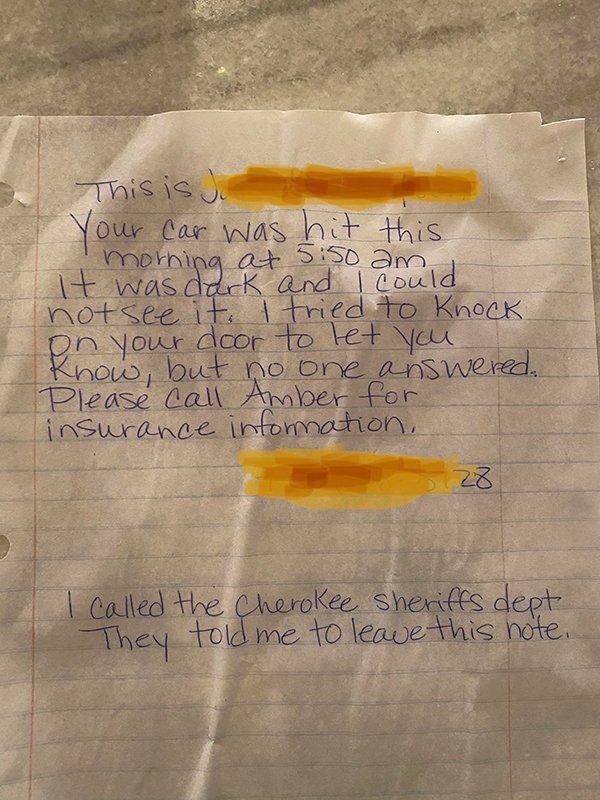 This is J
Your car was hit this
morning at 5:50 am
It was dark and I could
not see it. I tried to Knock
on your door to let you
Know, but no one answered.
Please Call Amber for
insurance information.
28
I called the Cherokee Sheriffs dept
They told me to leave this note.